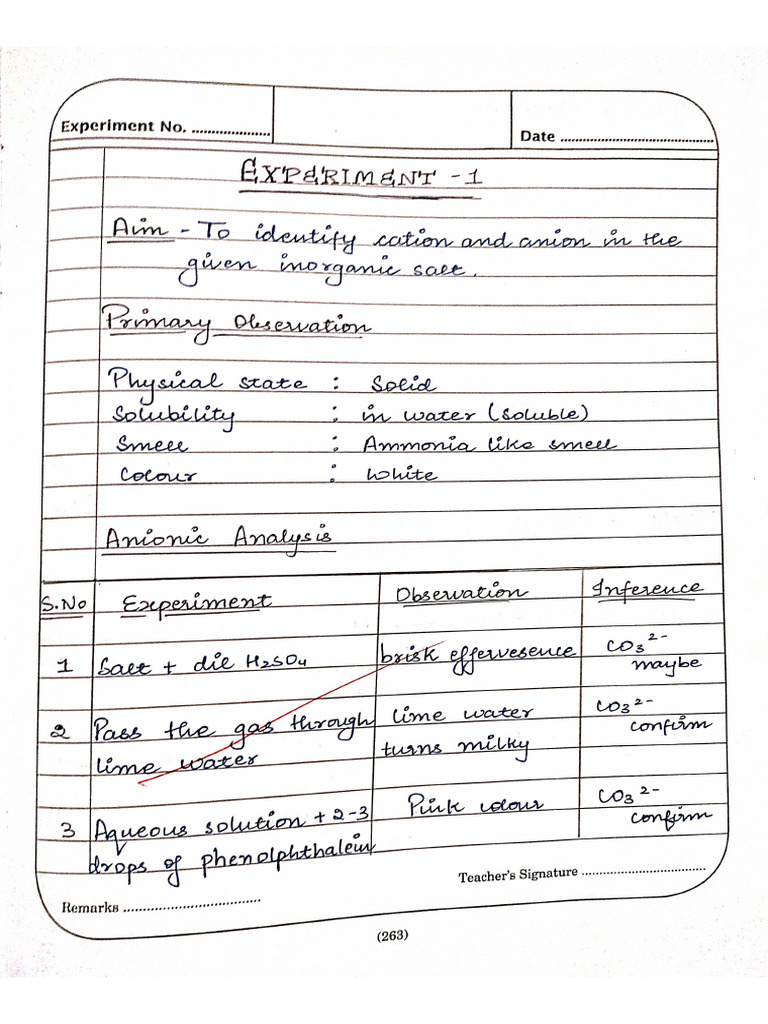 Experiment No. ....................
Date .......................................
EXPERIMENT - 1
Aim - To identify cation and anion in the
given inorganic salt.
Primary Observation
Physical state : Solid
Solubility : in water (soluble)
Smell : Ammonia like smell
Colour : White
Anionic Analysis
S.No Experiment Observation Inference
1 Salt + dil H₂SO₄ brisk effervesence CO₃²⁻
maybe
2 Pass the gas through lime water CO₃²⁻
lime water turns milky confirm
3 Aqueous solution + 2-3 Pink colour CO₃²⁻
drops of phenolphthalein confirm
Teacher's Signature ................................
Remarks ...................................
(263)